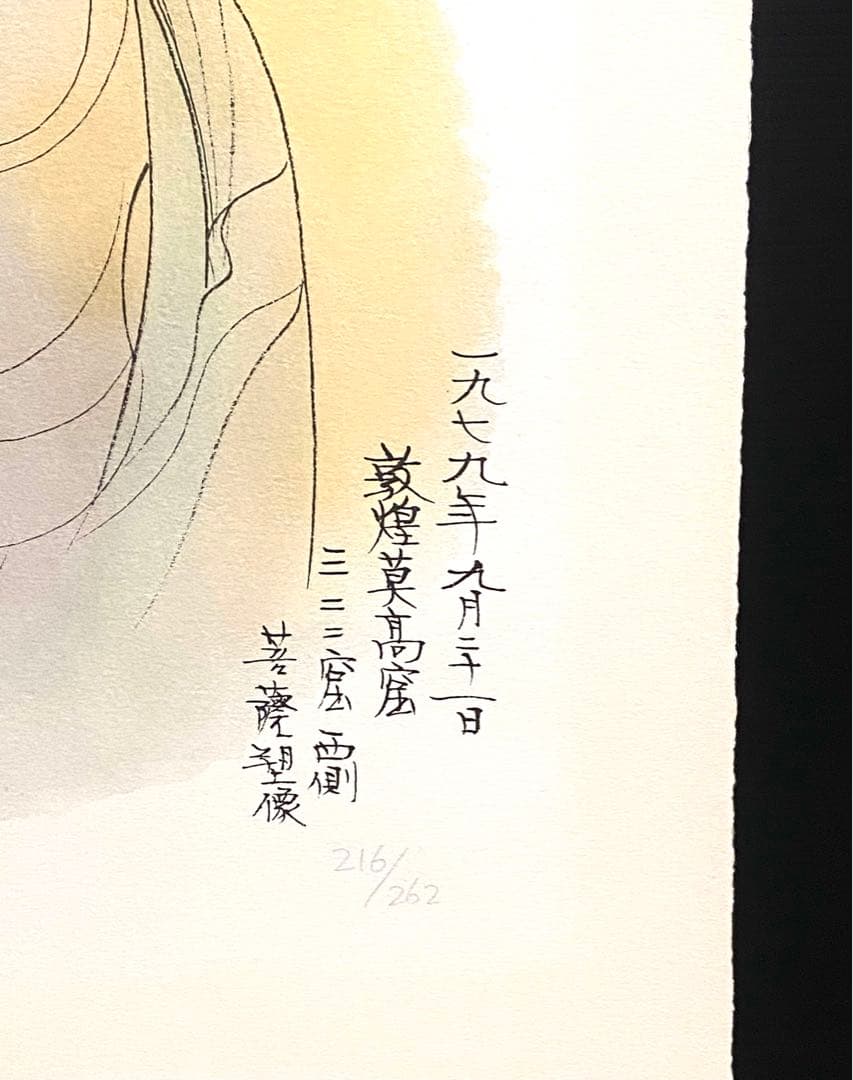 一九七九年九月二十一日
敦煌莫高窟
三二二窟 西側
菩薩塑像
216/262